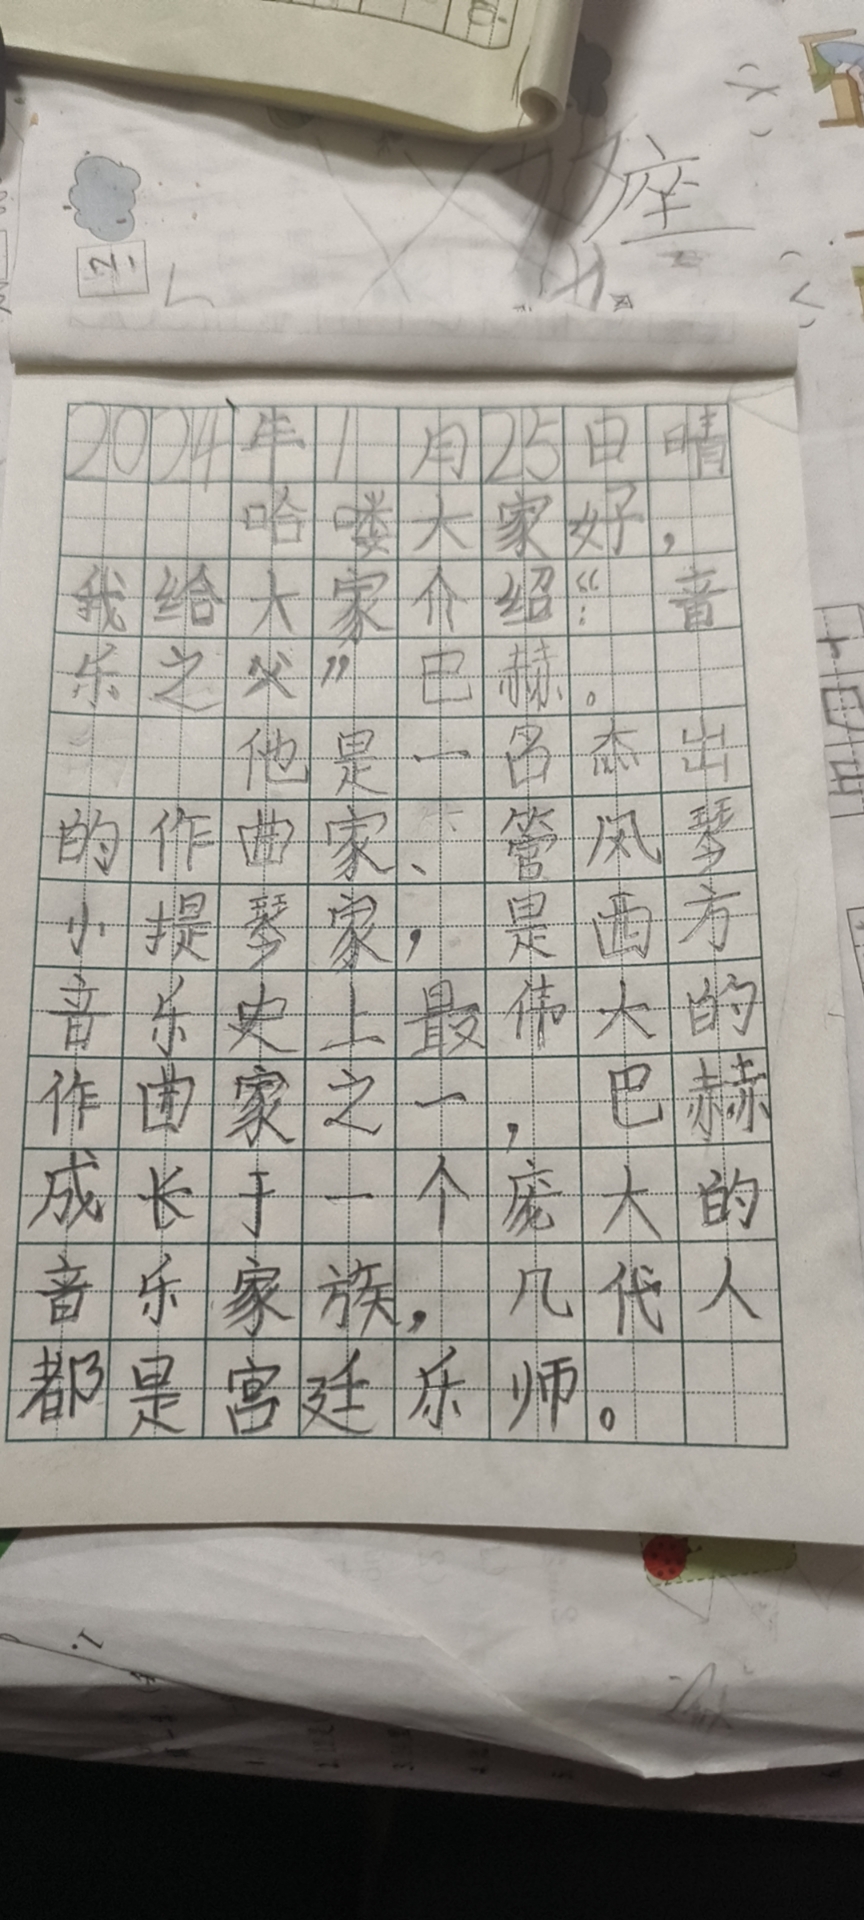 座
2024年1月25日晴
哈喽大家好，
我给大家介绍：“音
乐之父”巴赫。
他是一名杰出
的作曲家、管风琴
小提琴家，是西方
音乐史上最伟大的
作曲家之一，巴赫
成长于一个庞大的
音乐家族，几代人
都是宫廷乐师。